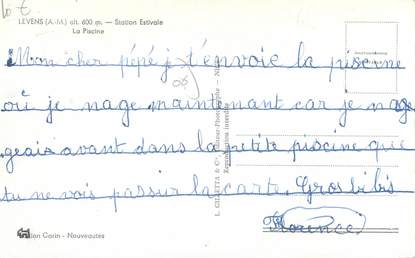 10 €
LEVENS (A.-M.) alt. 600 m. — Station Estivale
La Piscine
Mon cher pépé je t'envoie la piscine
où je nage maintenant car je na
geais avant dans la petite piscine que
tu ne vois pas sur la carte. Gros bibis
Florence
Edition Carin - Nouveautés
L. GILLETTA & Cie, Éditeur-Photographe - NICE
Reproduction interdite